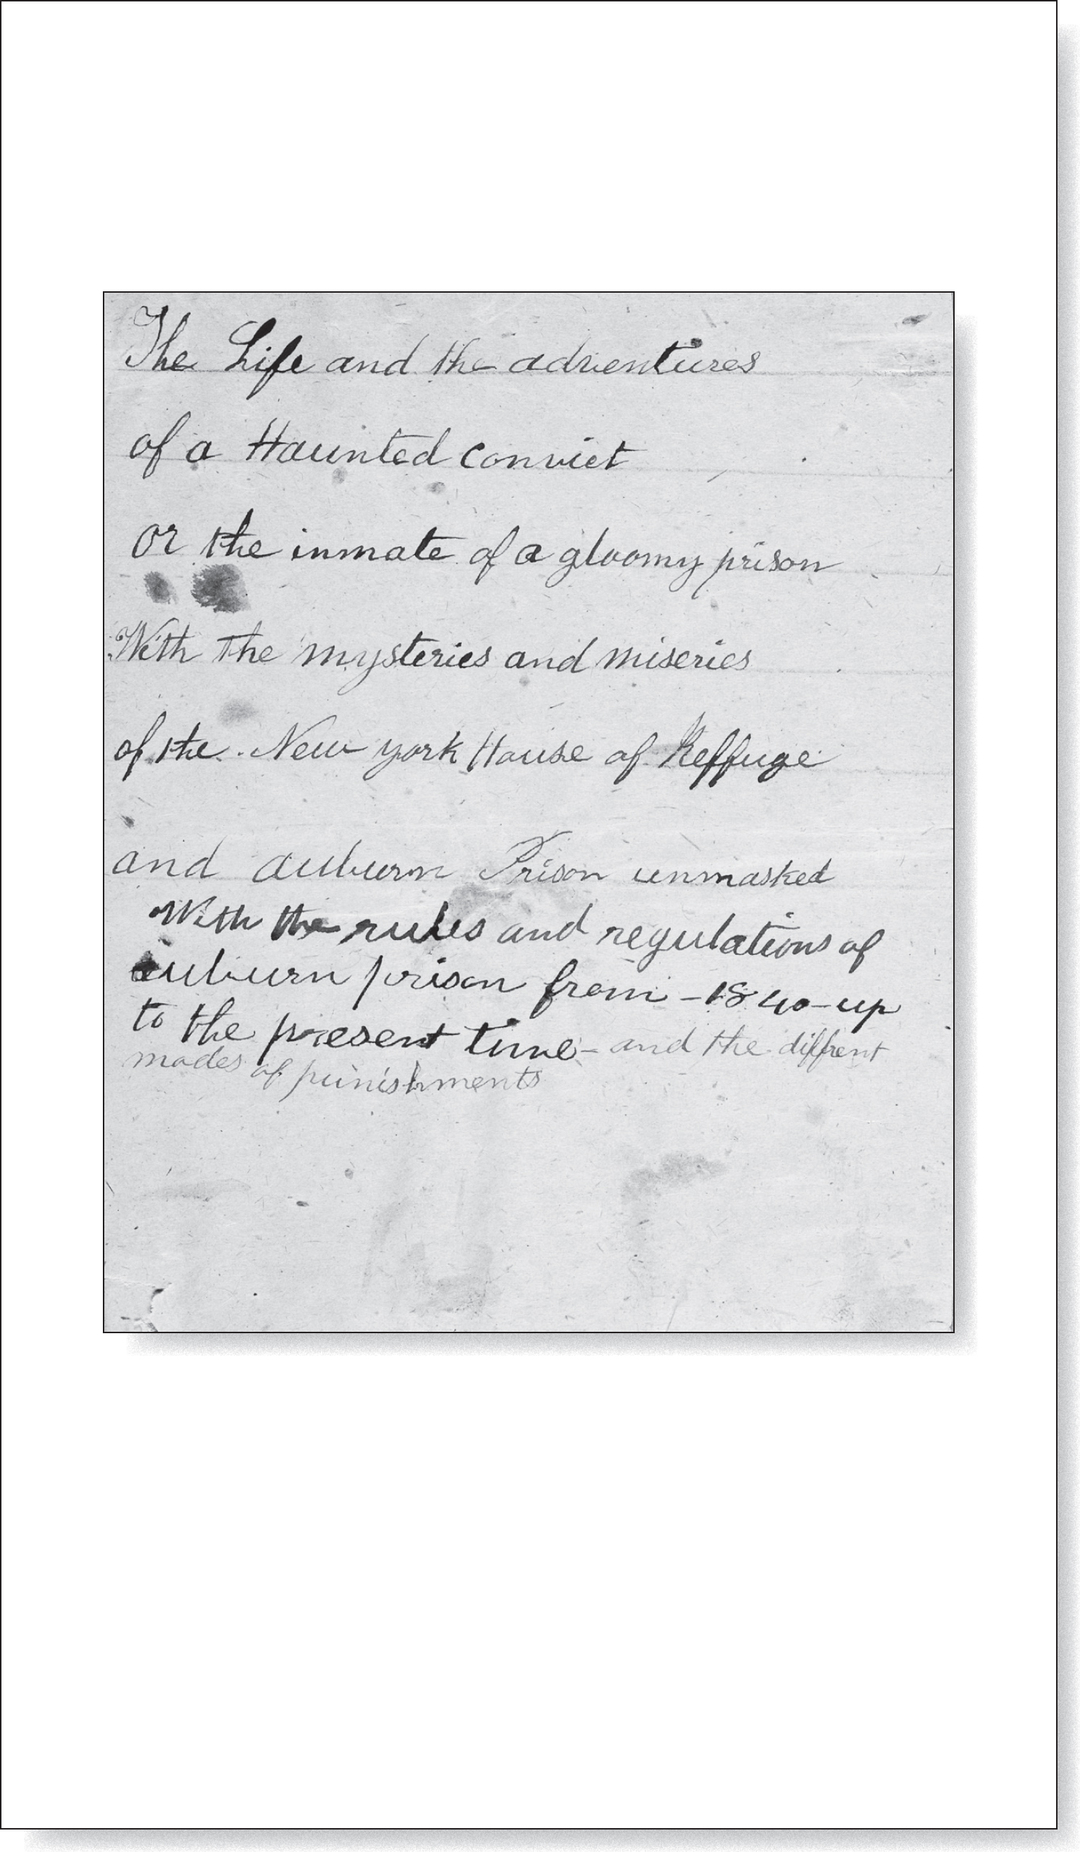 The Life and the adventures
of a Haunted Convict
or the inmate of a gloomy prison
With the mysteries and miseries
of the New york House of Reffuge
and auburn Prison unmasked
With the rules and regulations of
auburn prison from - 1840 - up
to the present time - and the diffrent
modes of punishments